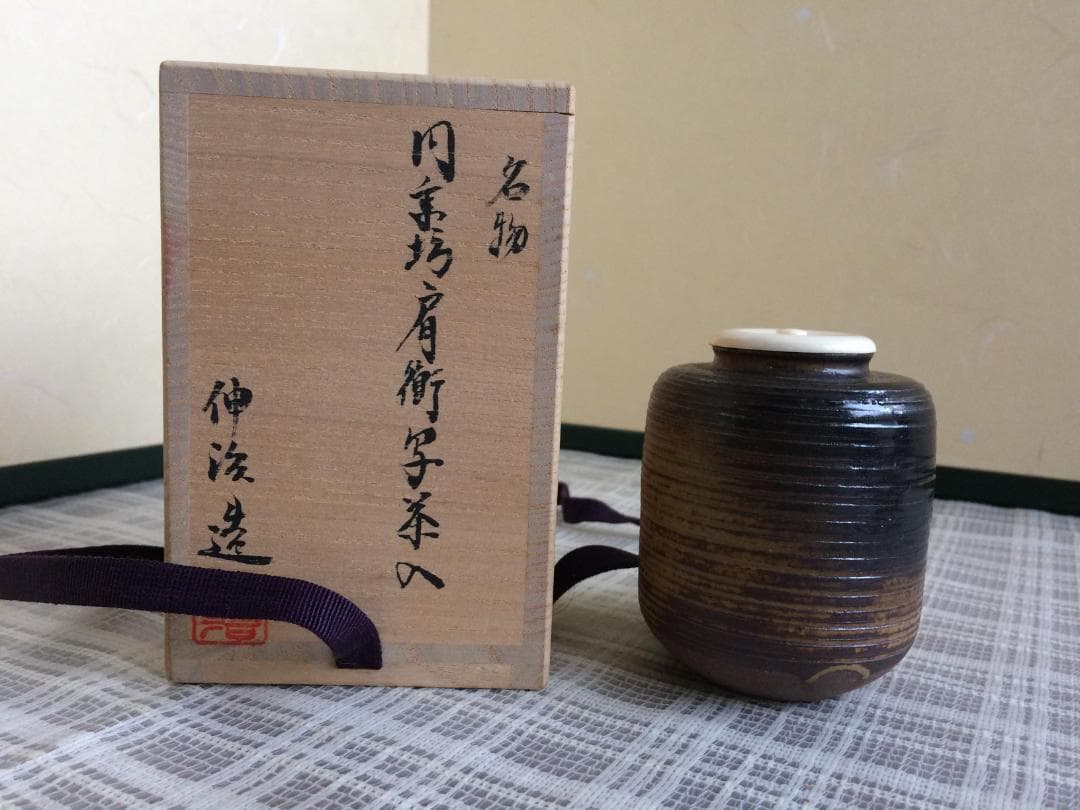 名物
円乗坊肩衝写茶入
伸渓造